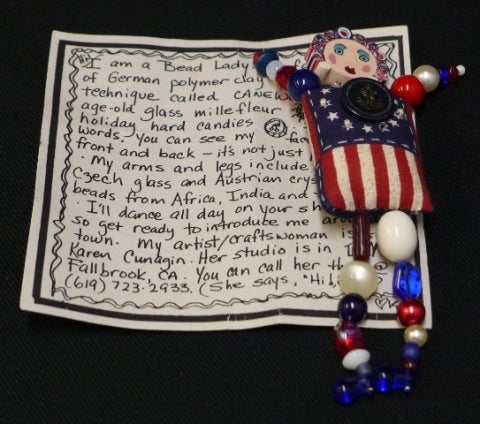 Hi,
I am a Bead Lady
of German polymer clay
technique called
age-old glass millefleur
holiday hard candies
words. You can see my
front and back - it's not just
My arms and legs include
Czech glass and Austrian
beads from Africa, India and
I'll dance all day on your
so get ready to introduce me
town. My artist/craftswoman is
Karen Cunagin. Her studio is in
Fallbrook, CA. You can call her
(619) 723-2933. (She says, "Hi